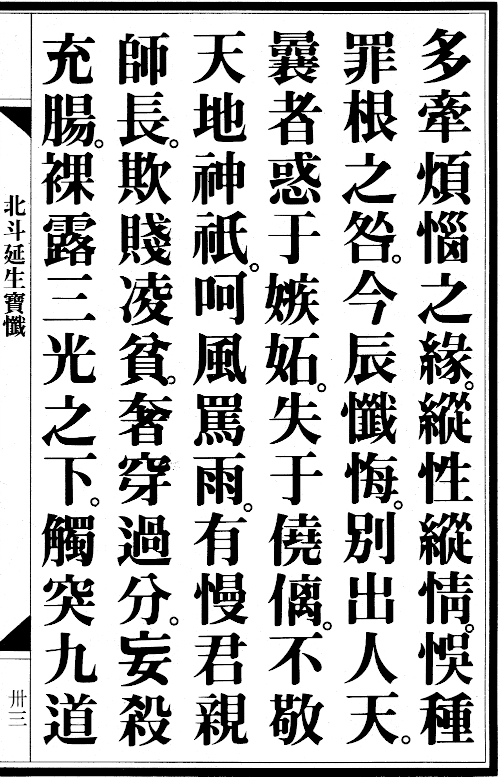 多牽煩惱之緣。縱性縱情。悞種
罪根之咎。今辰懺悔。別出人天。
曩者惑于嫉妬。失于僥㒧。不敬
天地神祇。呵風罵雨。有慢君親
師長。欺賤凌貧。奢穿過分。妄殺
充腸。裸露三光之下。觸突九道
北斗延生寶懺
卅三